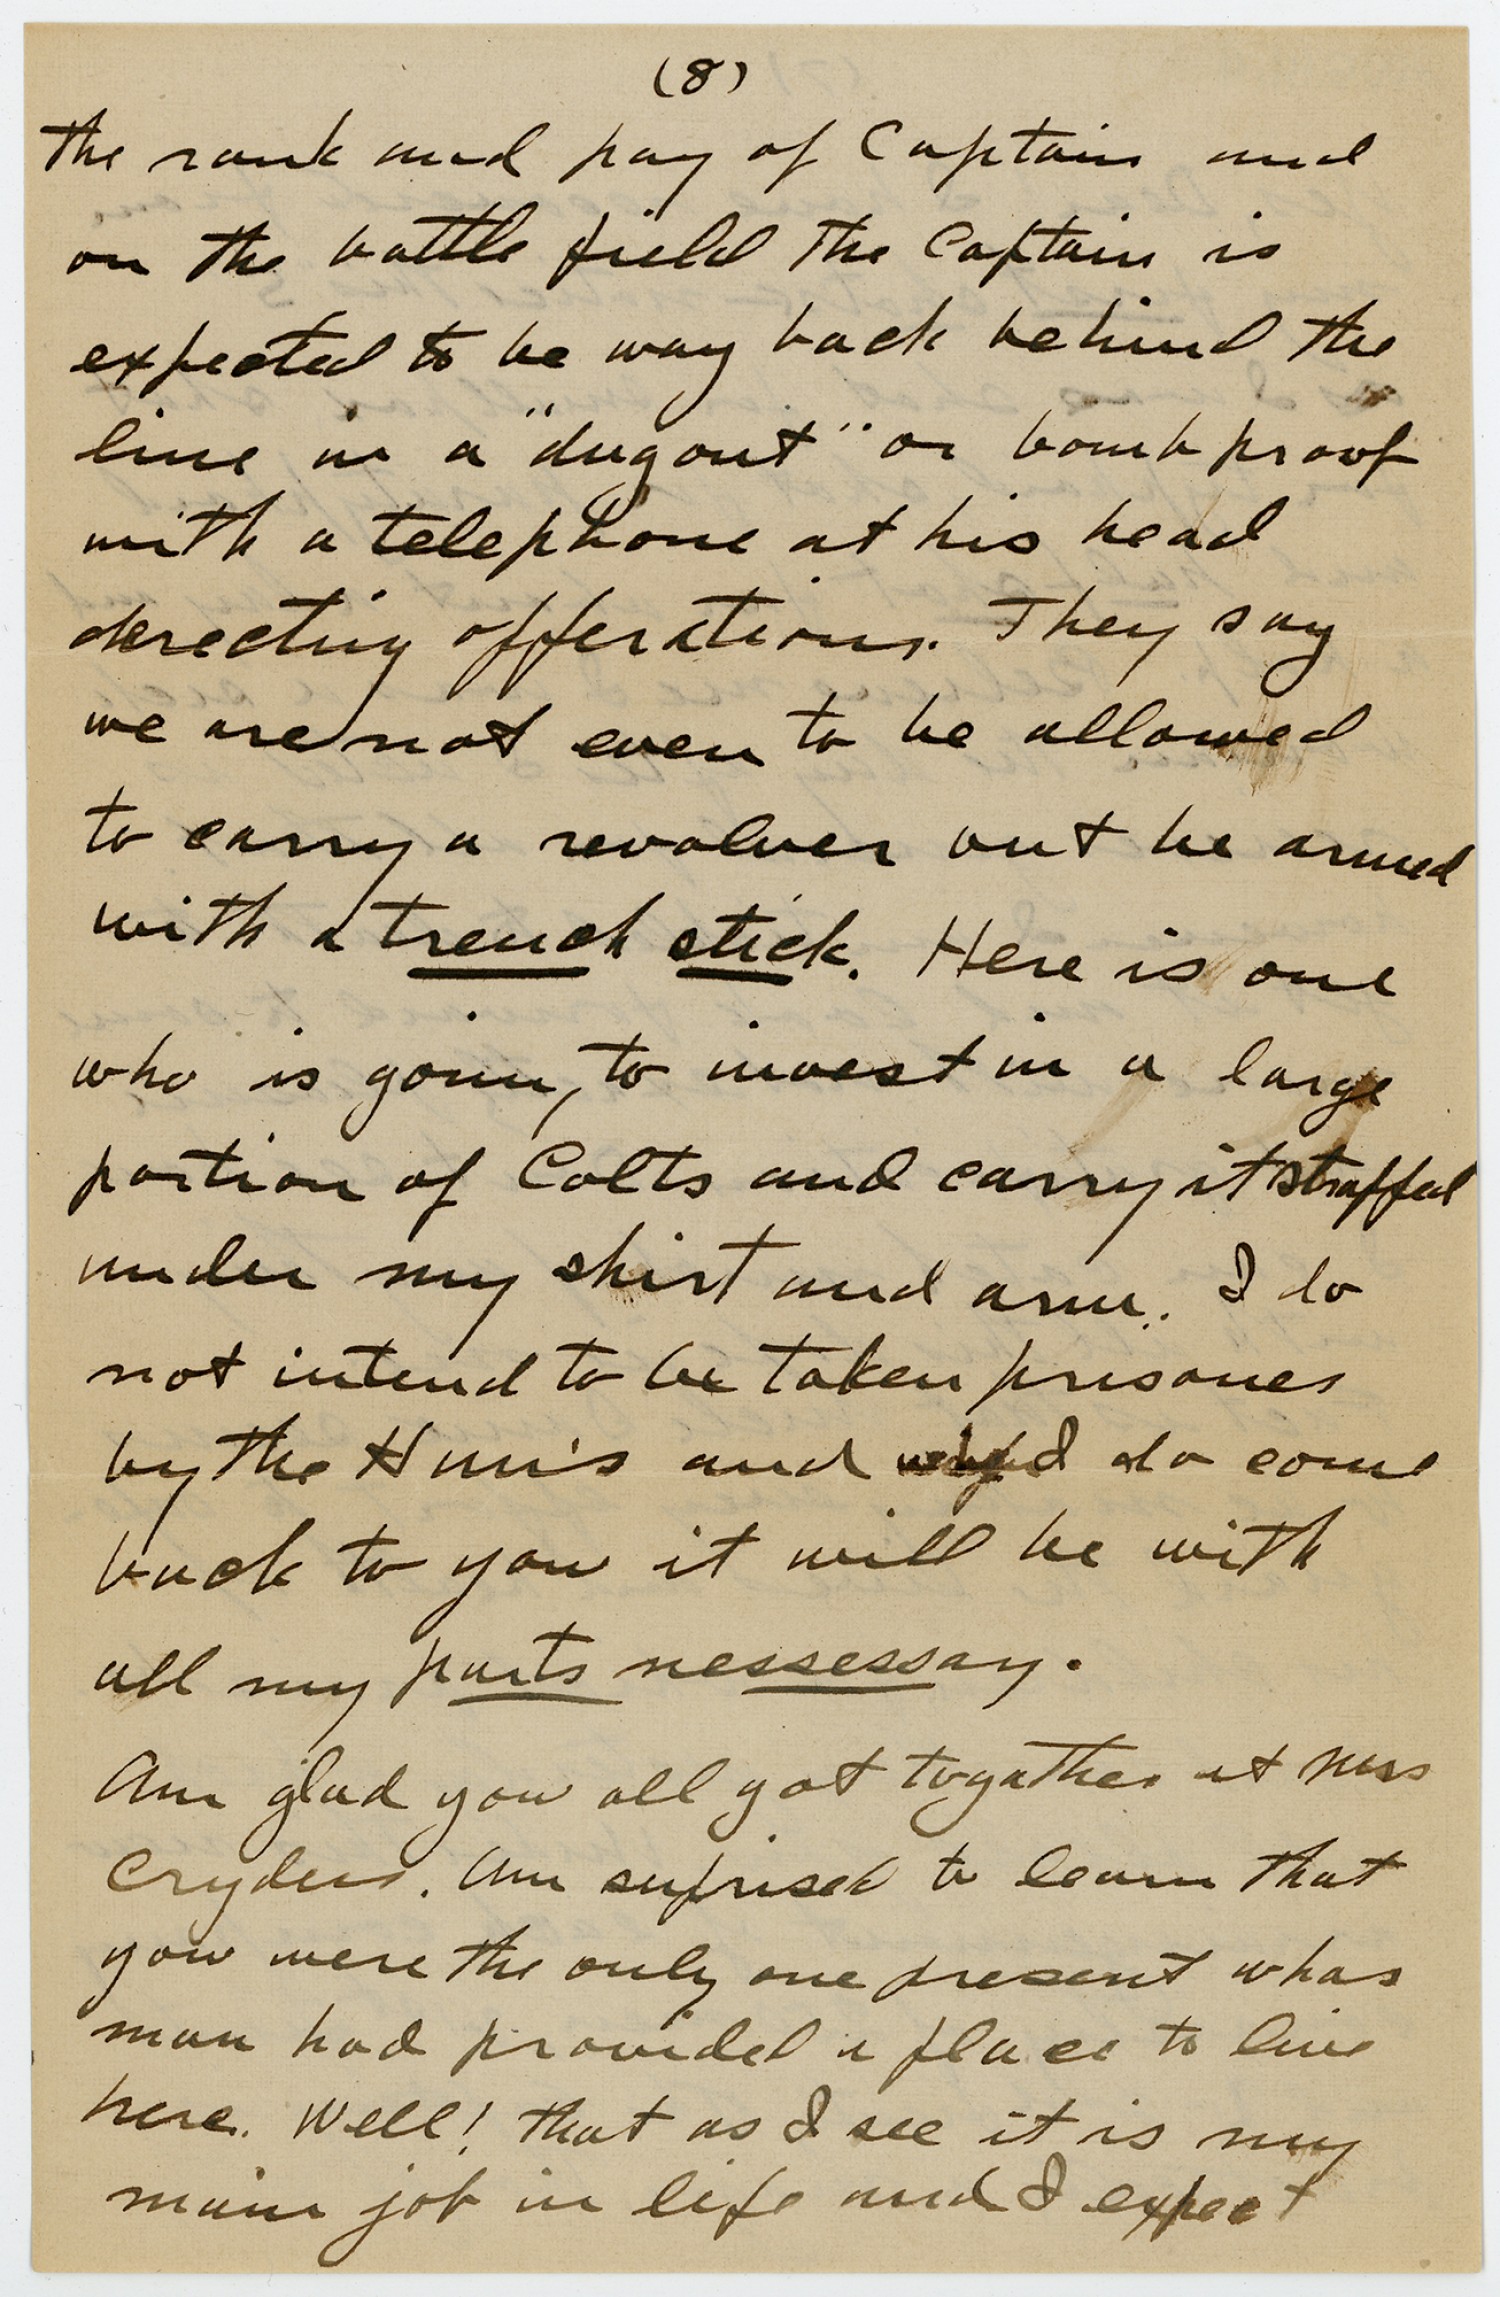 (8)
the rank and pay of Captain and
on the battle field the Captain is
expected to be way back behind the
line in a "dugout" or bomb proof
with a telephone at his head
derecting opperations. They say
we are not even to be allowed
to carry a revolver but be armed
with a trench stick. Here is one
who is goin, to invest in a large
portion of Colts and carry it strapped
under my shirt and arm. I do
not intend to be taken prisoner
by the Hun's and I do come
back to you it will be with
all my parts nessessay.
Am glad you all got togather at Mrs
Cryders. Am suprised to learn that
you were the only one present whos
man had provided a place to live
here. Well! that as I see it is my
main job in life and I expect